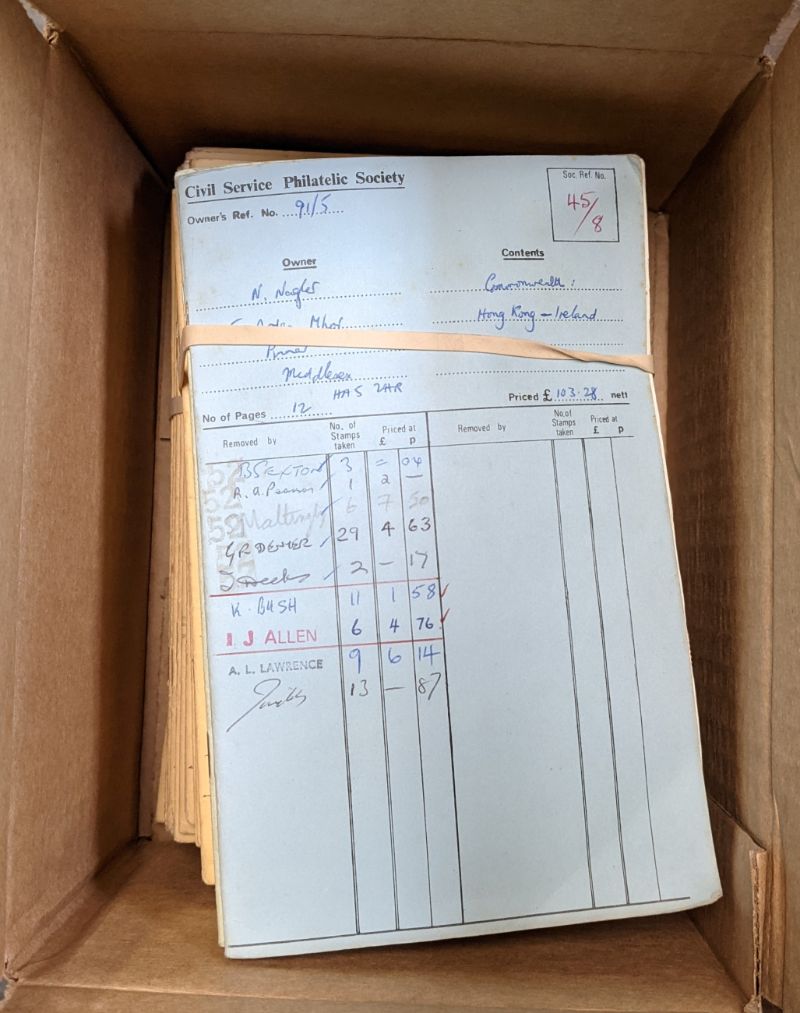 Civil Service Philatelic Society
Soc. Ref. No.
45/8
Owner's Ref. No. 91/5
Owner
Contents
N. Nagler
Commonwealth:
Hong Kong - Ireland
Pinner
Middlesex
HA5 2HR
No of Pages 12
Priced £ 103.28 nett
Removed by No. of Stamps taken Priced at £ p Removed by No. of Stamps taken Priced at £ p
B SEXTON 3 = 04
R. A. Pearson 1 2 —
Mattingly 6 7 50
GR DENYER 29 4 63
2 - 17
K. BUSH 11 1 58
I J ALLEN 6 4 76
A. L. LAWRENCE 9 6 14
13 - 87